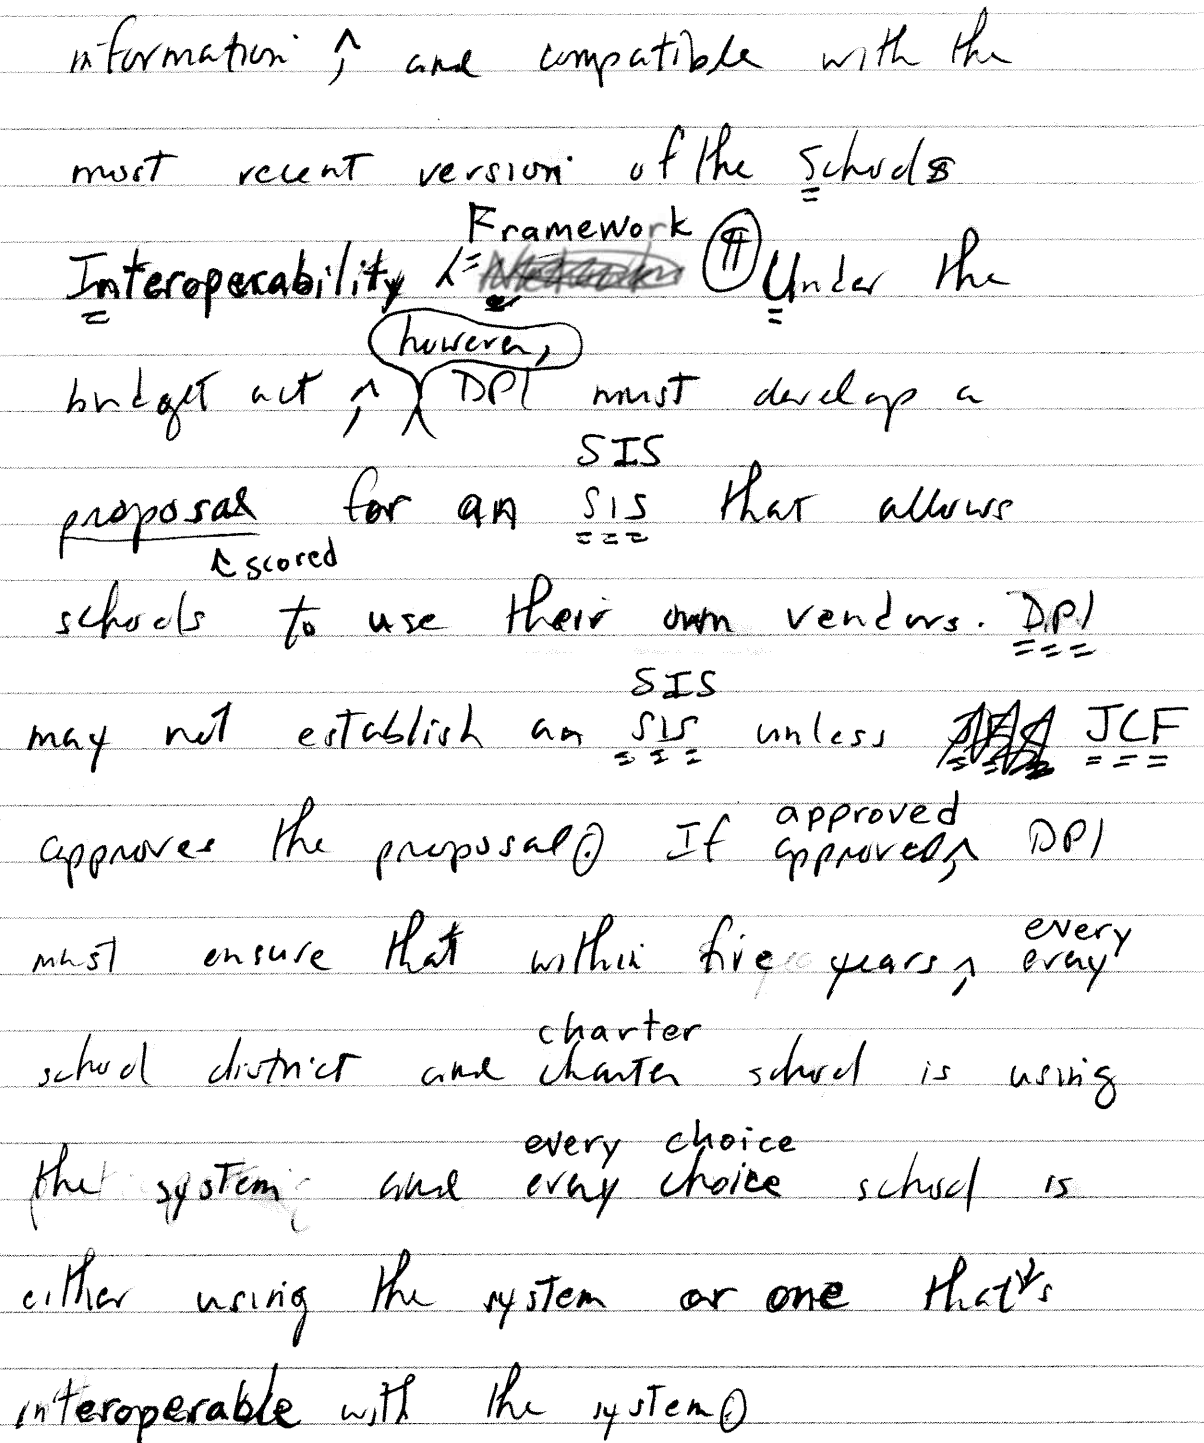 information, and compatible with the
most recent version of the Schools
Framework
Interoperability ¶ Under the
however,
budget act, DPI must develop a
SIS
proposal for an SIS that allows
scored
schools to use their own vendors. DPI
SIS
may not establish an SIS unless JCF
approved
approves the proposal. If approved, DPI
every
must ensure that within five years, every
charter
school district and charter school is using
every choice
the system and every choice school is
either using the system or one that's
interoperable with the system.